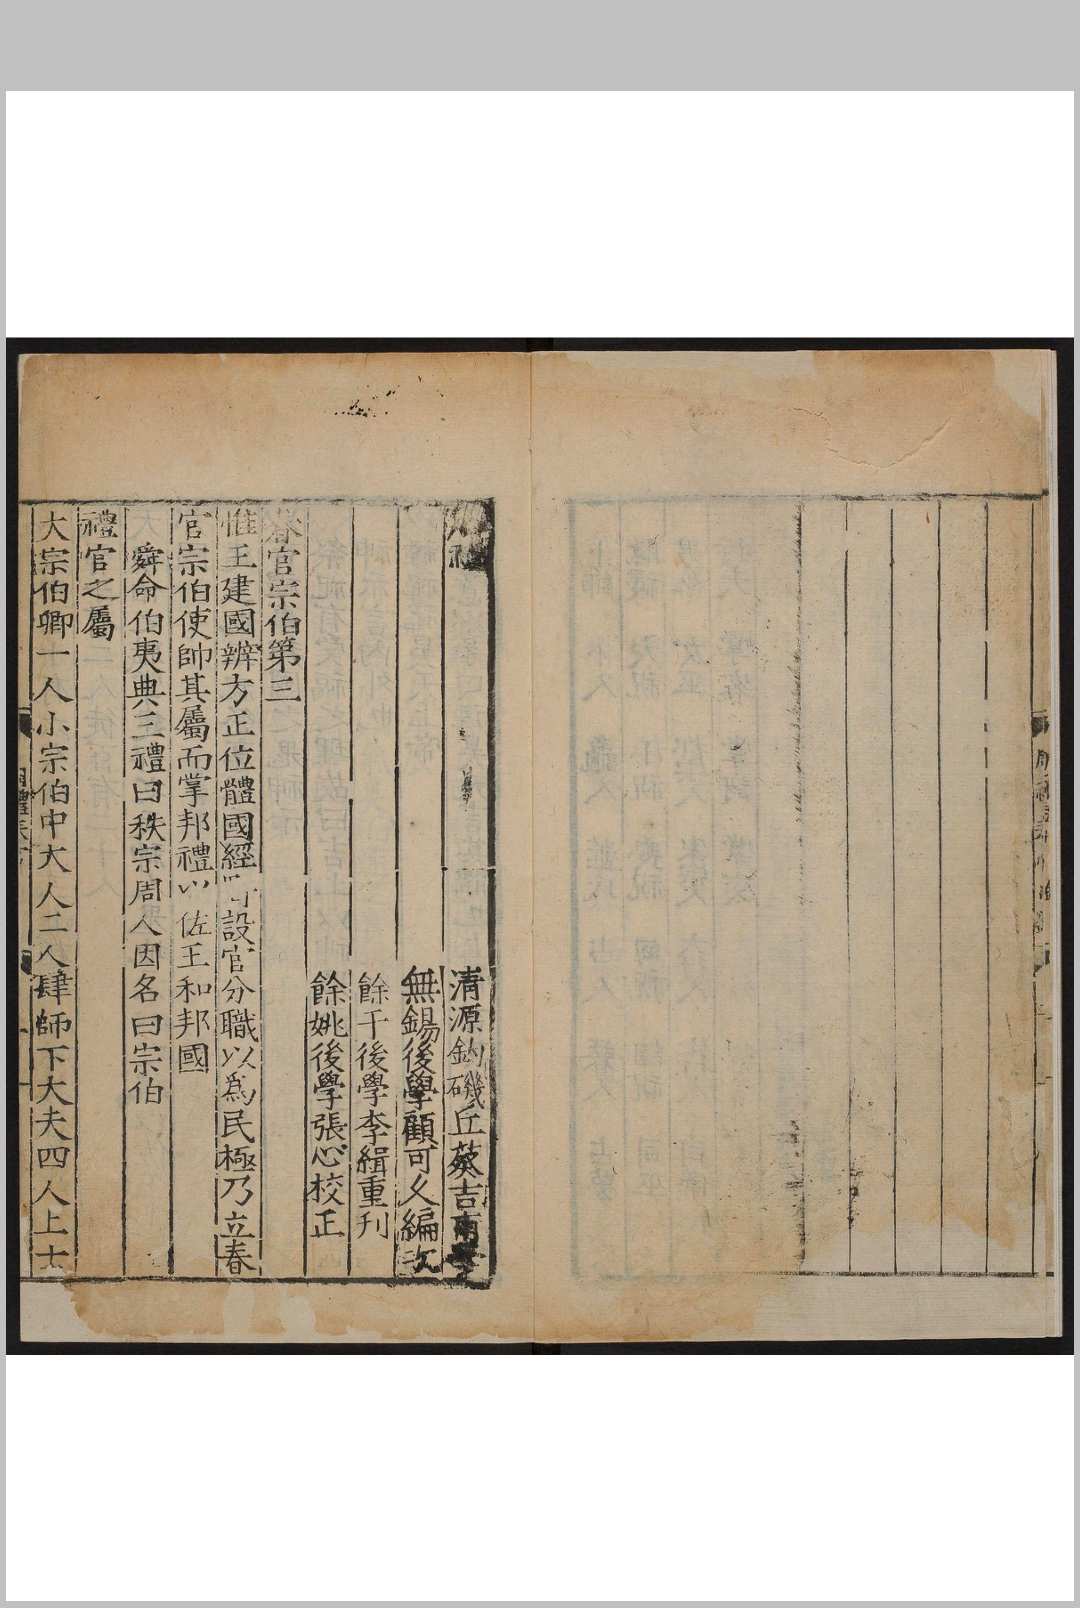 周禮
清源釣磯丘葵吉甫學
無錫後學顧可久編次
餘干後學李緝重刋
餘姚後學張心校正
春官宗伯第三
惟王建國辨方正位體國經野設官分職以爲民極乃立春
官宗伯使帥其屬而掌邦禮以佐王和邦國
舜命伯夷典三禮曰秩宗周人因名曰宗伯
禮官之屬
大宗伯卿一人小宗伯中大人二人肆師下大夫四人上士